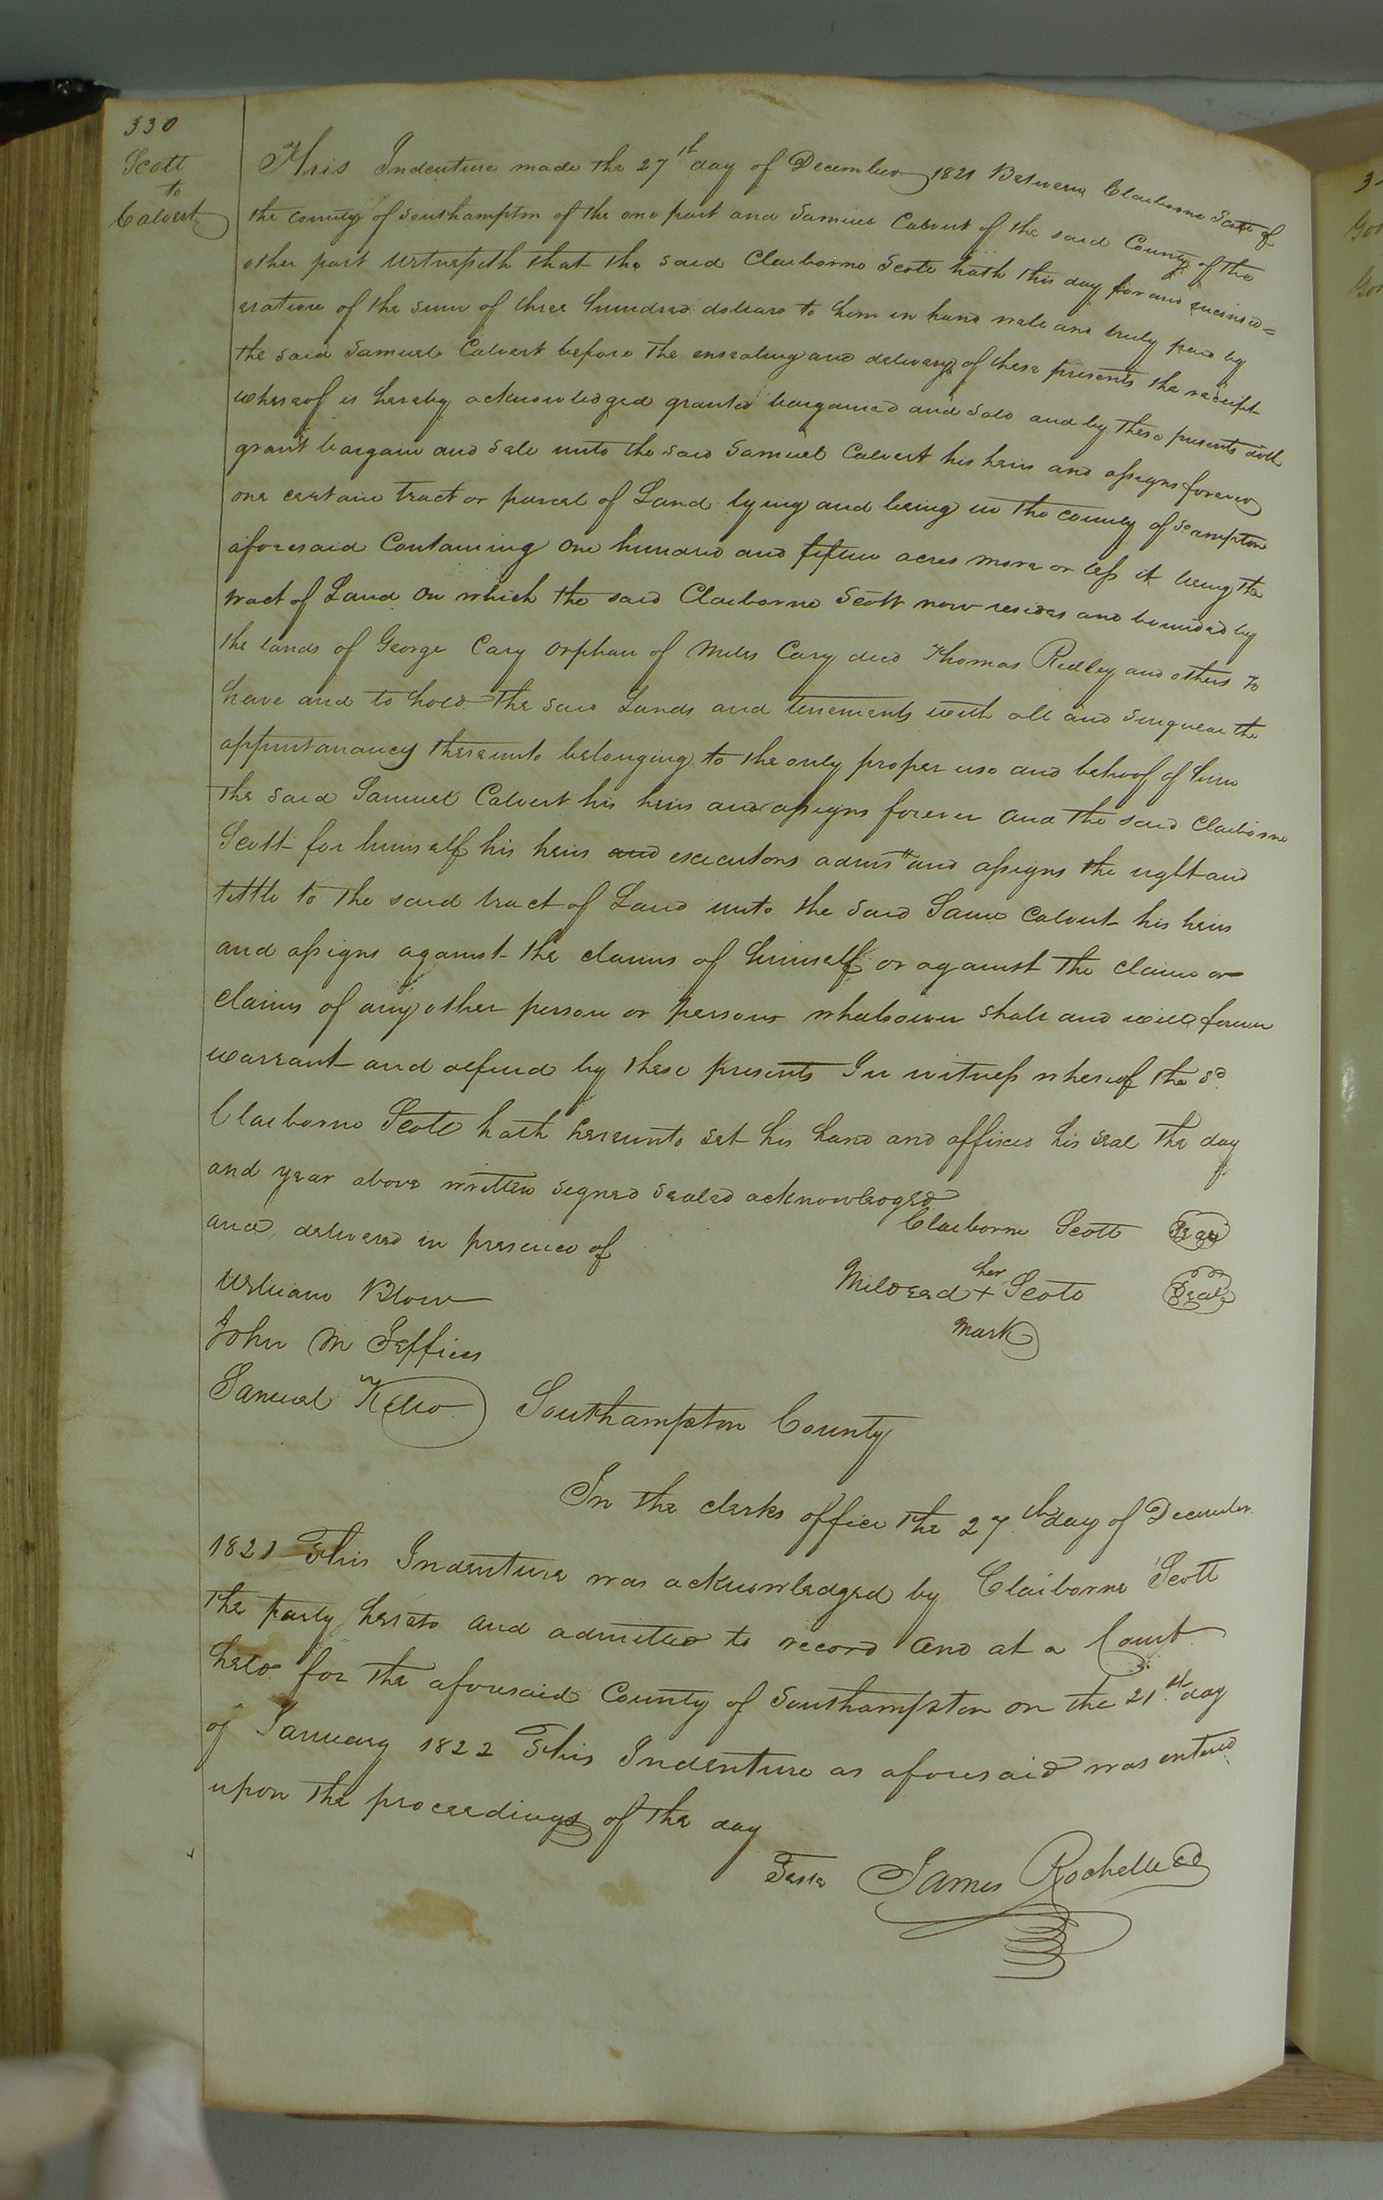 330
Scott
to
Calvert
This Indenture made the 27th day of December 1821 Between Claiborne Scott of
the county of Southampton of the one part and Samuel Calvert of the said County of the
other part Witnesseth that the said Claiborne Scott hath this day for and inconsid=
eration of the sum of three hundred dollars to him in hand well and truly paid by
the said Samuel Calvert before the ensealing and delivery of these presents the receipt
whereof is hereby acknowledged granted bargained and sold and by these presents doth
grant bargain and sell unto the said Samuel Calvert his heirs and assigns forever
one certain tract or parcel of Land lying and being in the county of So ampton
aforesaid Containing one hundred and fifteen acres more or less it being the
tract of Land on which the said Claiborne Scott now resides and bounded by
the lands of George Cary orphan of Miles Cary decd Thomas Ridley and others To
have and to hold the said Lands and tenements with all and singular the
appurtanancy thereunto belonging to the only proper use and behoof of him
the said Samuel Calvert his heirs and assigns forever And the said Claiborne
Scott for himself his heirs and executors admrs and assigns the right and
tittle to the said tract of Land unto the said Saml Calvert his heirs
and assigns against the claims of himself or against the claim or
claims of any other person or persons whatsoever shall and will forever
warrant and defend by these presents In witness whereof the sd
Claiborne Scott hath hereunto set his hand and affixed his seal the day
and year above written signed sealed acknowledged
and delivered in presence of
Claiborne Scott Seal
William Blow
her
Mildread + Scott Seal
mark
John M Jeffries
Samuel Kello
Southampton County
In the clerks office the 27th day of December
1821 This Indenture was acknowledged by Claiborne Scott
the party hereto and admitted to record And at a Court
held for the aforesaid County of Southampton on the 21st day
of January 1822 This Indenture as aforesaid was entered
upon the proceedings of the day
Teste James Rochelle CC